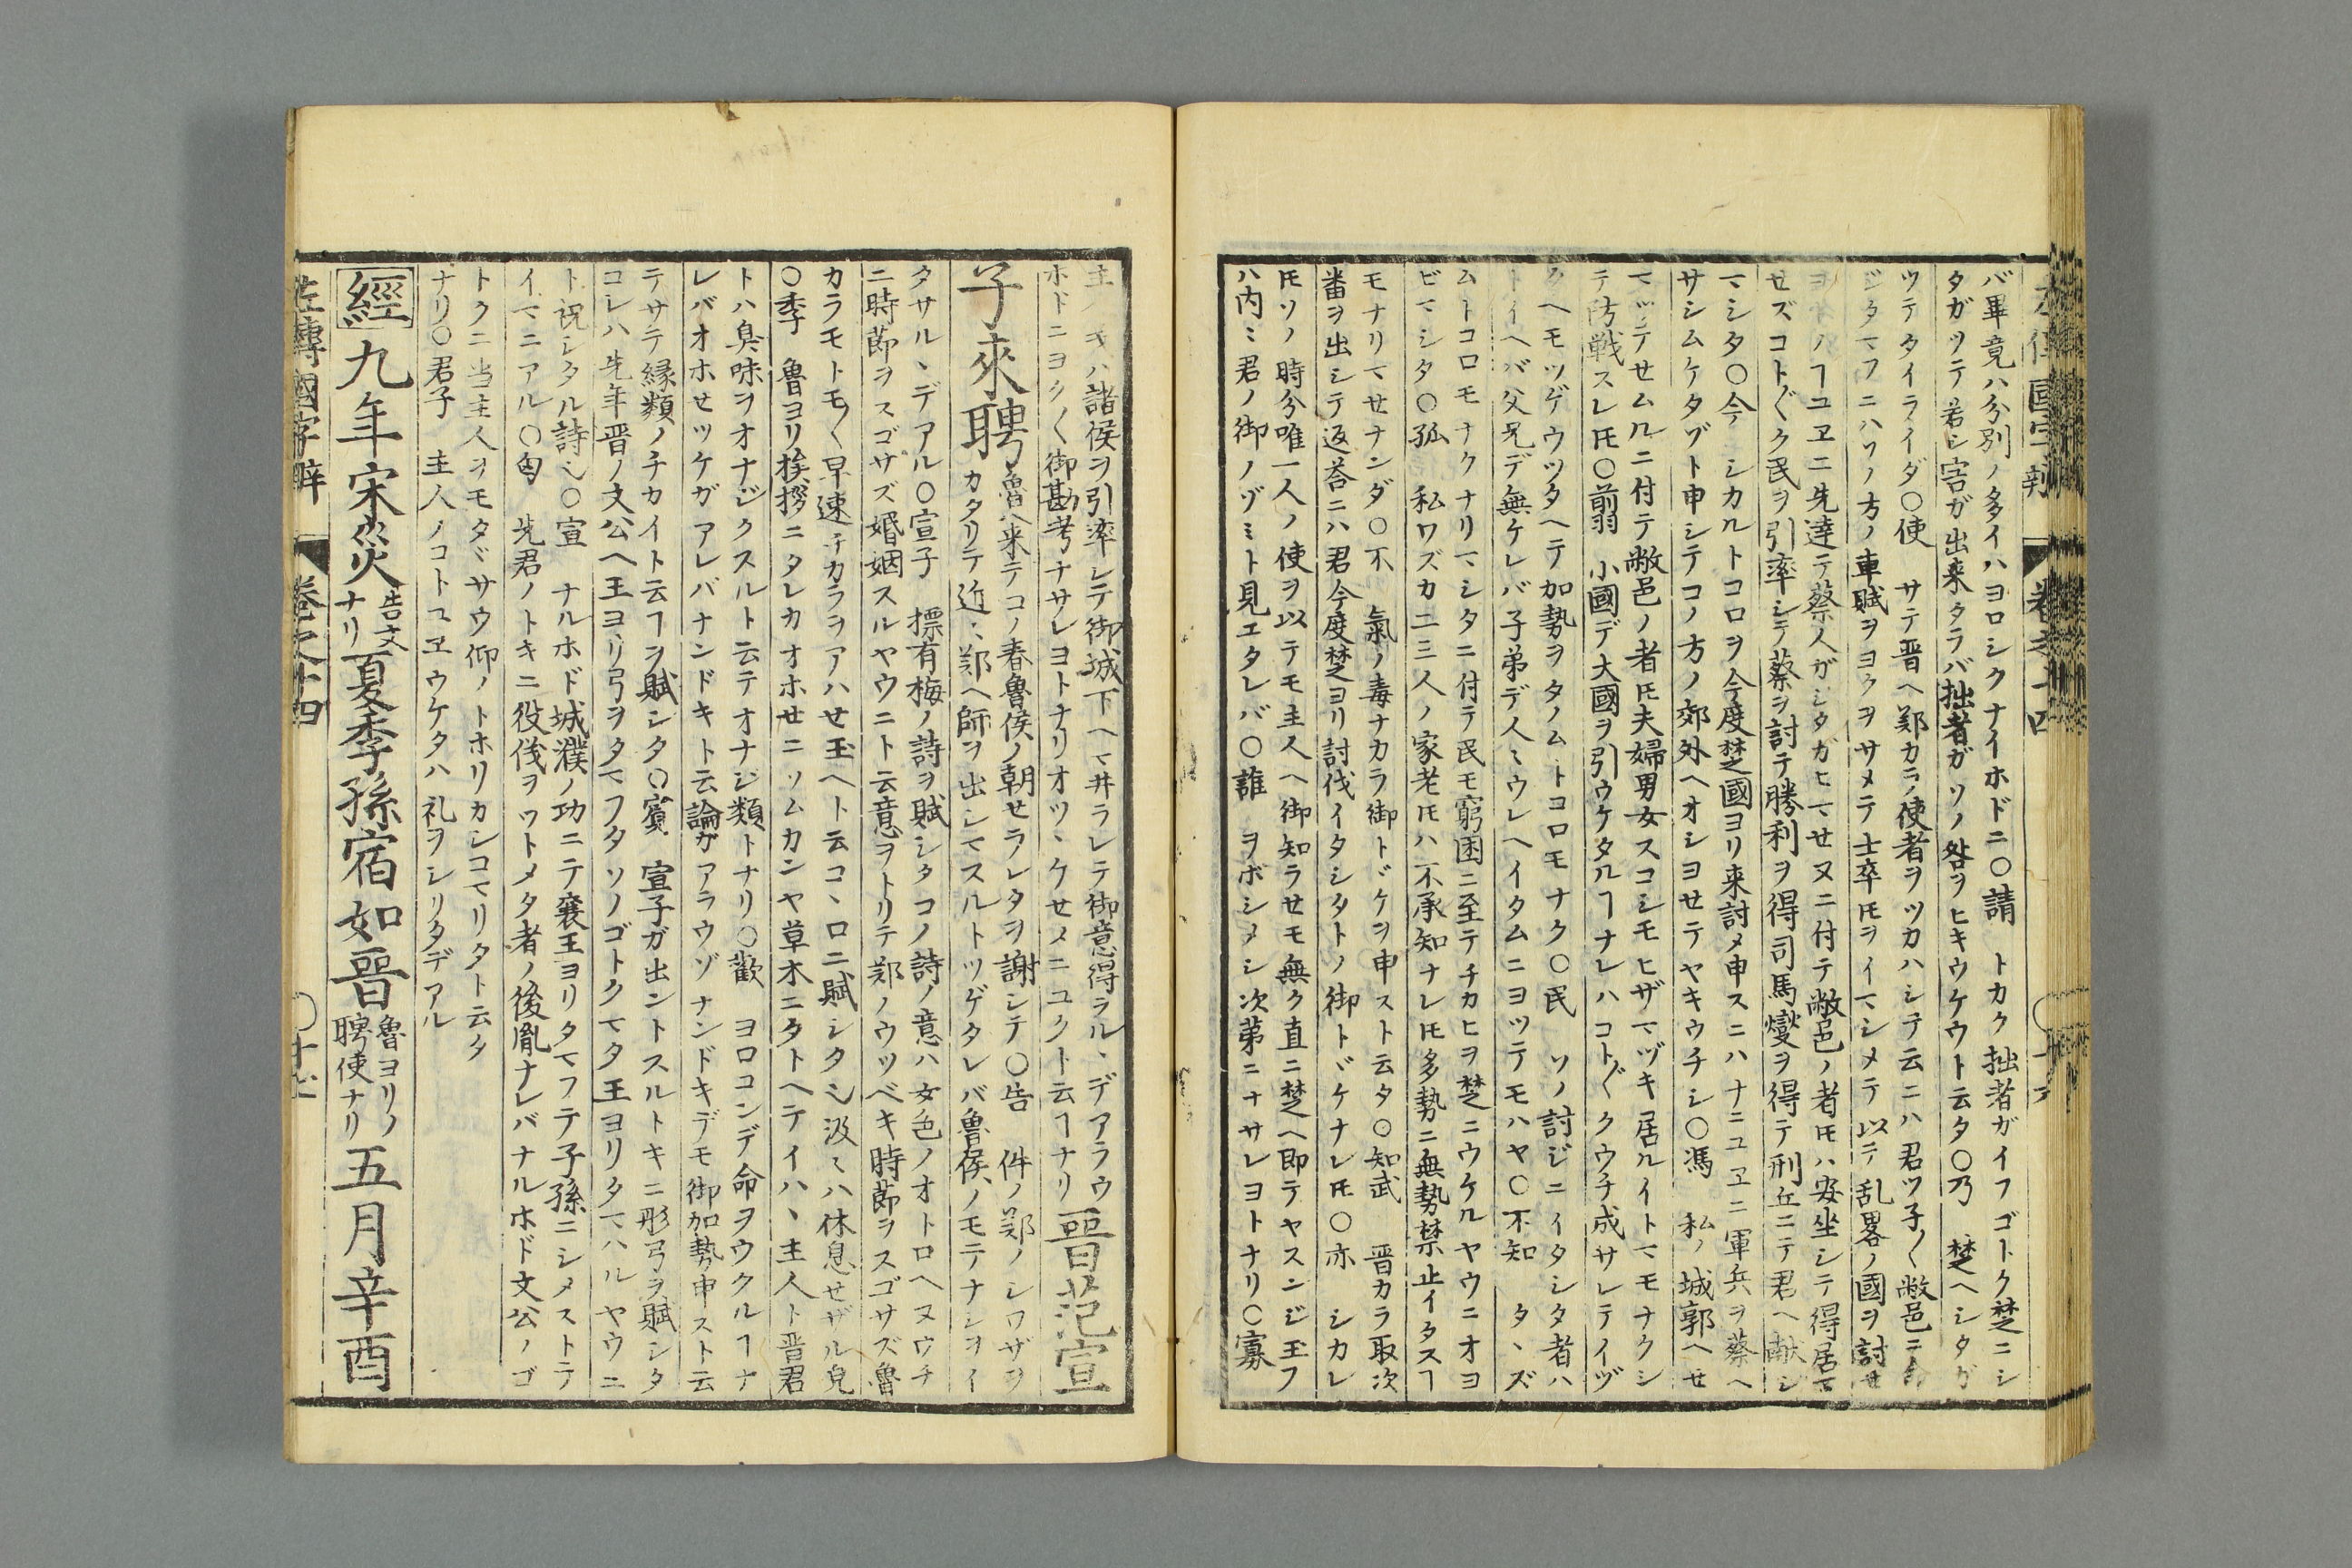 バ畢竟ハ分別ノ多イハヨロシクナイホドニ〇請　トカク拙者ガイフゴトク楚ニシ
タガツテ若シ害ガ出来タラバ拙者ガソノ咎ヲヒキウケウト云タ〇乃　楚ヘシタガ
ツテタイライダ〇使　サテ晋ヘ鄭カラノ使者ヲツカハシテ云ニハ君ツ子〱敝邑ニ命
ジタマフニハソノ方ノ車賦ヲヨクヲサメテ士卒𪜈ヲイマシメテ以テ乱畧ノ國ヲ討セ
ノヿユヱニ先達テ蔡人ガシタガヒマセヌニ付テ敝邑ノ者𪜈ハ安坐シテ得居マ
せズコト〲ク民ヲ引率シテ蔡ヲ討テ勝利ヲ得司馬燮ヲ得テ刑丘ニテ君ヘ献シ
マシタ〇今　シカルトコロヲ今度楚國ヨリ来討メ申スニハナニユヱニ軍兵ヲ蔡ヘ
サシムケタゾト申シテコノ方ノ郊外ヘオシヨせテヤキウチシ〇馮　私ノ城郭ヘせ
マツテせムルニ付テ敝邑ノ者𪜈夫婦男女スコシモヒザマヅキ居ルイトマモナクシ
テ防戦スレ𪜈〇翦　小國デ大國ヲ引ウケタルヿナレハコト〲クウチ成サレテイヅ
クヘモツゲウツタヘテ加勢ヲタノムトコロモナク〇民　ソノ討ジニイタシタ者ハ
トイヘバ父兄デ無ケレバ子弟デ人〻ウレヘイタムニヨツテモハヤ〇不知　タヽズ
ムトコロモナクナリマシタニ付テ民モ窮困ニ至テチカヒヲ楚ニウケルヤウニオヨ
ビマシタ〇孤　私ワズカ二三人ノ家老𪜈ハ不承知ナレ𪜈多勢ニ無勢禁止イタスヿ
モナリマせナンダ〇不　氣ノ毒ナカラ御トヾケヲ申スト云タ〇知武　晋カラ取次
畨ヲ出シテ返荅ニハ君今度楚ヨリ討伐イタシタトノ御トヾケナレ𪜈〇亦　シカレ
𪜈ソノ時分唯一人ノ使ヲ以テモ主人ヘ御知ラせモ無ク直ニ楚ヘ即テヤスンジ玉フ
ハ内〻君ノ御ノゾミト見エタレバ〇誰　ヲボシメシ次第ニナサレヨトナリ〇寡
ハ諸侯ヲ引率レテ御城下ヘマ井ラレテ御意得ラルヽデアラウ
ホドニヨク〱御勘考ナサレヨトナリオツヽケせメニユクト云ヿナリ 晋范宣
子來聘 魯ヘ来テコノ春魯侯ノ朝せラレタヲ謝シテ〇告　件ノ鄭ノシワザヲ
カタリテ近〻鄭ヘ師ヲ出シマスルトツゲタレバ魯侯ノモテナシヲイ
タサルヽデアル〇宣子　摽有梅ノ詩ヲ賦シタコノ詩ノ意ハ女色ノオトロヘヌウチ
ニ時莭ヲスゴサズ婚姻スルヤウニト云意ヲトリテ鄭ノウツベキ時莭ヲスゴサズ魯
カラモトモ〱早速チカラヲアハせ玉ヘト云コヽロニ賦シタ也汲〻ハ休息せザル皃
〇季　魯ヨリ挨拶ニタレカオホせニソムカンヤ草木ニタトヘテイハヽ主人ト晋君
トハ臭味ヲオナジクスルト云テオナジ類トナリ〇歡　ヨロコンデ命ヲウクルヿナ
レバオホせツケガアレバナンドキト云論ガアラウゾナンドキデモ御加勢申スト云
テサテ縁類ノチカイト云ヿヲ賦シタ〇賓　宣子ガ出ントスルトキニ彤弓ヲ賦シタ
コレハ先年晋ノ文公ヘ王ヨリ弓ヲタマフタソノゴトクマタ王ヨリタマハルヤウニ
ト祝シタル詩也〇宣　ナルホド城濮ノ功ニテ襄王ヨリタマフテ子孫ニシメストテ
イマニアル〇匄　先君ノトキニ役伐ヲツトメタ者ノ後胤ナレバナルホド文公ノゴ
トクニ当主人ヲモタヾサウ仰ノトホリカシコマリタト云タ
ナリ〇君子　主人ノコトユヱウケタハ礼ヲシリタデアル
經 九年宋災 告文ナリ 夏季孫宿如晋 魯ヨリノ聘使ナリ 五月辛酉
左傳國字辯　巻之十四